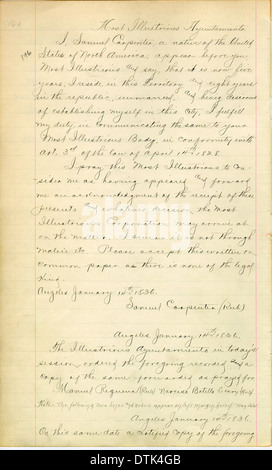 Most Illustrious Ayuntamiento
I, Samuel Carpenter, a native of the United
States of North America, appear before you
Most Illustrious Body and say, that it is now five
years, I reside in this Territory and eight years
in the republic, unmarried, and being desirous
of establishing myself in this City, I fulfill
my duty in communicating the same to your
Most Illustrious Body, in conformity with
Art. 3rd of the law of April 14th 1828.
I pray this Most Illustrious to con-
sider me as having appeared and forward
me an acknowledgment of the receipt of these
presents and whatever decision the Most
Illustrious Corporation may arrive at
on the matter. I swear it is not through
malice etc. Please accept this written on
common paper as there is none of the legal
kind.
Angeles January 14th 1836.
Samuel Carpenter (Rub)
Angeles January 14th 1836.
The Illustrious Ayuntamiento in today's
session, ordered the foregoing recorded and a
copy of the same forwarded as prayed for.
Manuel Requena (Rub) Narciso Botello
Angeles January 1836.
On this same date a certified copy of the foregoing
alamy
DTK4GB